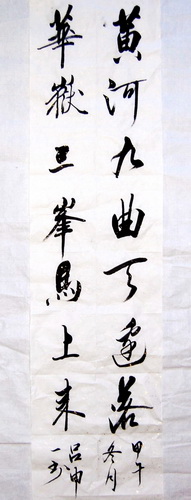 黄河九曲天邊落
甲午
冬月
華嶽三峯馬上来